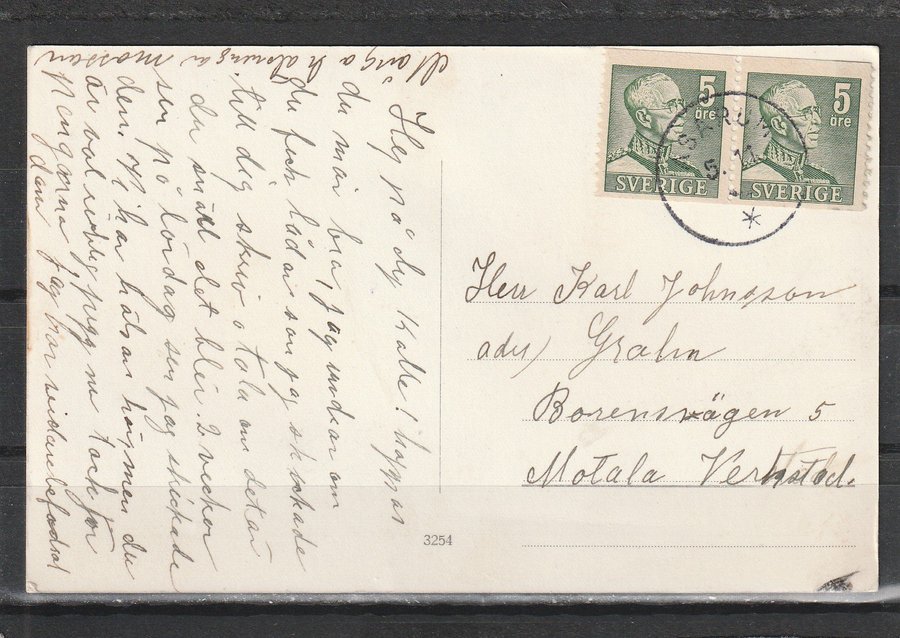 Hej på dig Kalle! hoppas
du mår bra, jag undrar om
du fick lådan som jag skickade
till dig, skriv o tala om det är
du snäll det blir 2 veckor
sen på lördag sen jag skickade
den. Vi har hälsan här, men du
är väl riktigt pigg nu tack för
pengarna jag var
Många hälsningar
5 öre
SVERIGE
5 öre
SVERIGE
5. 11
Herr Karl Johnsson
adr/ Grahn
Borensvägen 5
Motala Verkstad.
3254